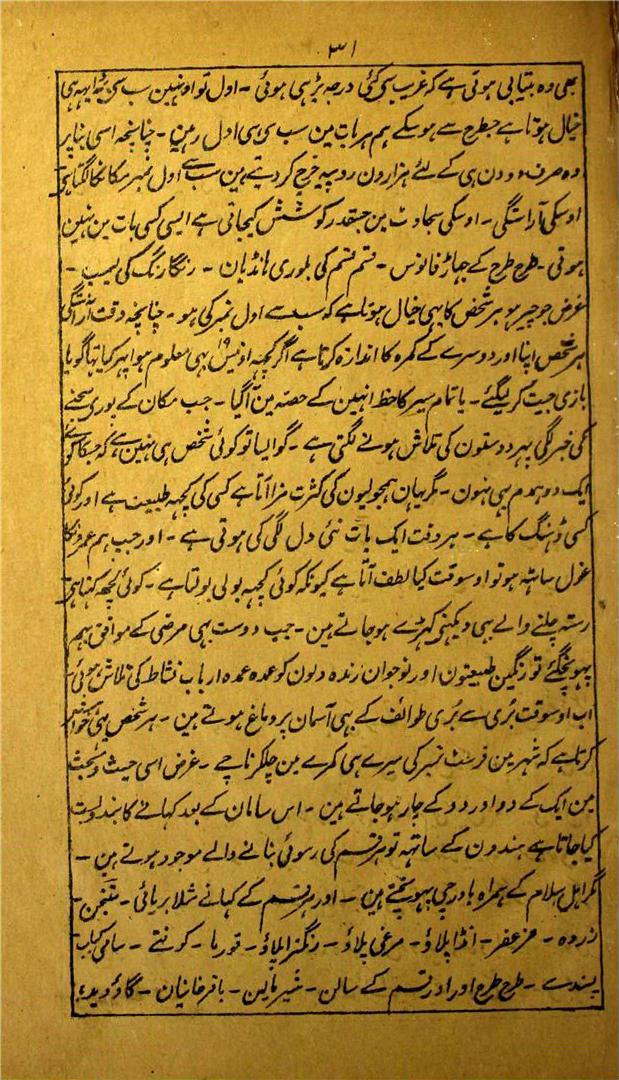 ۳۱
بھی وہ بیتابی ہوتی ہے کہ غریب سی کئی درجہ بڑہی ہوئی ۔ اول تو اونہین سب سی پہلے یہہ ہی
خیال ہوتا ہے جسطرح سے ہو سکے ہم ہر بات مین سب سی سی اول رہین ۔ چنانچہ اسی بنا پر
وہ صرف دو دن ہی کے لئے ہزارون روپیہ خرچ کر دیتے ہین سب سے اول نمبر مکانکا لگتا ہی
اوسکی آراستگی ۔ اوسکی سجاوٹ مین جسقدر کوشش کیجاتی ہے ایسی کسی بات مین نہین
ہوتی ۔ طرح طرح کے جہاڑ فانوس ۔ قسم قسم کی بلوری ہانڈیان ۔ رنگا رنگ کی لیمپ ۔
غرض جو چیز ہو ہر شخص کا یہی خیال ہوتا ہے کہ سب سے اول نمبر کی ہو ۔ چنانچہ وقت آراستگی
ہر شخص اپنا اور دوسرے کے کمرہ کا اندازہ کرتا ہے اگر کچہہ اونیس ۱۹ بہی معلوم ہوا پہر کیا تہا گویا
بازی جیت کر لیگئے ۔ یا تمام سیر کا حظ انہین کے حصہ مین آگیا ۔ جب مکان کے پوری سجنے
کی خبر لگی پہر دوستون کی تلاش ہونے لگتی ہے ۔ گو ایسا تو کوئی شخص ہی نہین ہے کہ جسکا کوئی
ایک دو ہمدم ہی نہون ۔ مگر یہان ہمجولیون کی کثرت مزا آتا ہے کسی کی کچہہ طبیعت ہے اور کوئی
کسی ڈہنگ کا ہے ۔ ہر وقت ایک بات نئی دل لگی کی ہوتی ہے ۔ اور جب ہم عمرونکا
غول ساتہہ ہو تو اوسوقت کیا لطف آتا ہے کیونکہ کوئی کچہہ بولی بولتا ہے ۔ کوئی کچھ کہتا ہی
رستہ چلنے والے بہی دیکہنی کہڑے ہو جاتے ہین ۔ جب دوست بہی مرضی کے موافق بہم
پہونچگئے تو رنگین طبیعتون اور نوجوان زندہ دلون کو عمدہ عمدہ ارباب نشاط کی تلاش ہوئی ۔
اب اوسوقت بُری سے بُری طوائف کے بہی آسمان پر دماغ ہوتے ہین ۔ ہر شخص یہی خواہش
کرتا ہے کہ شہر مین فرسٹ نمبر کی میرے ہی کمرے مین چلکر ناچے ۔ غرض اسی حیث و بحث
مین ایک کے دو اور دو کے چار ہو جاتے ہین ۔ اس سامان کے بعد کہانے کا بندوبست
کیا جاتا ہے ہندون کے ساتہہ تو ہر قسم کی رسوئی بنانے والے موجود ہوتے ہین ۔
مگر اہل اسلام کے ہمراہ باورچی پہونچتے ہین ۔ اور ہر قسم کے کہانے مثلا بریانی ۔ متنجن ۔
زردہ ۔ مزعفر ۔ انڈا پلاؤ ۔ مرغی پلاؤ ۔ پلاؤ ۔ قورما ۔ کوفتے ۔ سامی کباب
پسندے ۔ طرح طرح اور اور قسم کے سالن ۔ شیر مالین ۔ باقر خانیان ۔ گاؤ دیدہ